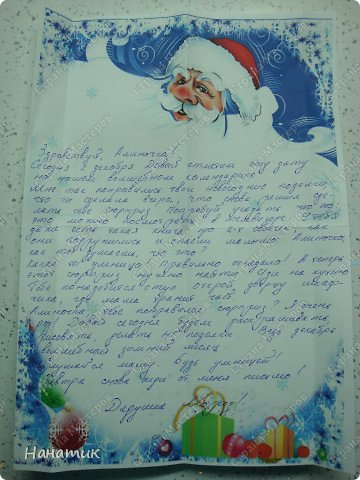 Здравствуй, Алиночка!
Сегодня 2 декабря. Давай отметим эту дату
на нашем волшебном календарике
Мне так понравились твои новогодние поделки,
что ты сделала вчера, что снова решил сде-
лать тебе сюрприз Попробуй угадать что то
это можно посмотреть А У тебя
даже есть такая книга про х собачек, как
они подружились и спасли малыша. Алиночка,
как ты думаешь, что это?
Правильно отгадала! А теперь
этот сюрприз нужно найти. Иди на кухню
Тебе понадобится стул открой дверцу шкаф-
чика, где мама хранит чай.
Алиночка, тебе понравился сюрприз? Я очень
рад! Давай сегодня будем раскрашивать,
рисовать, делать поделки Ведь декабрь
волшебный зимний месяц
Слушайся маму. Будь умницей!
Завтра снова жди от меня письмо!
Дедушка Мороз!
Нанатик